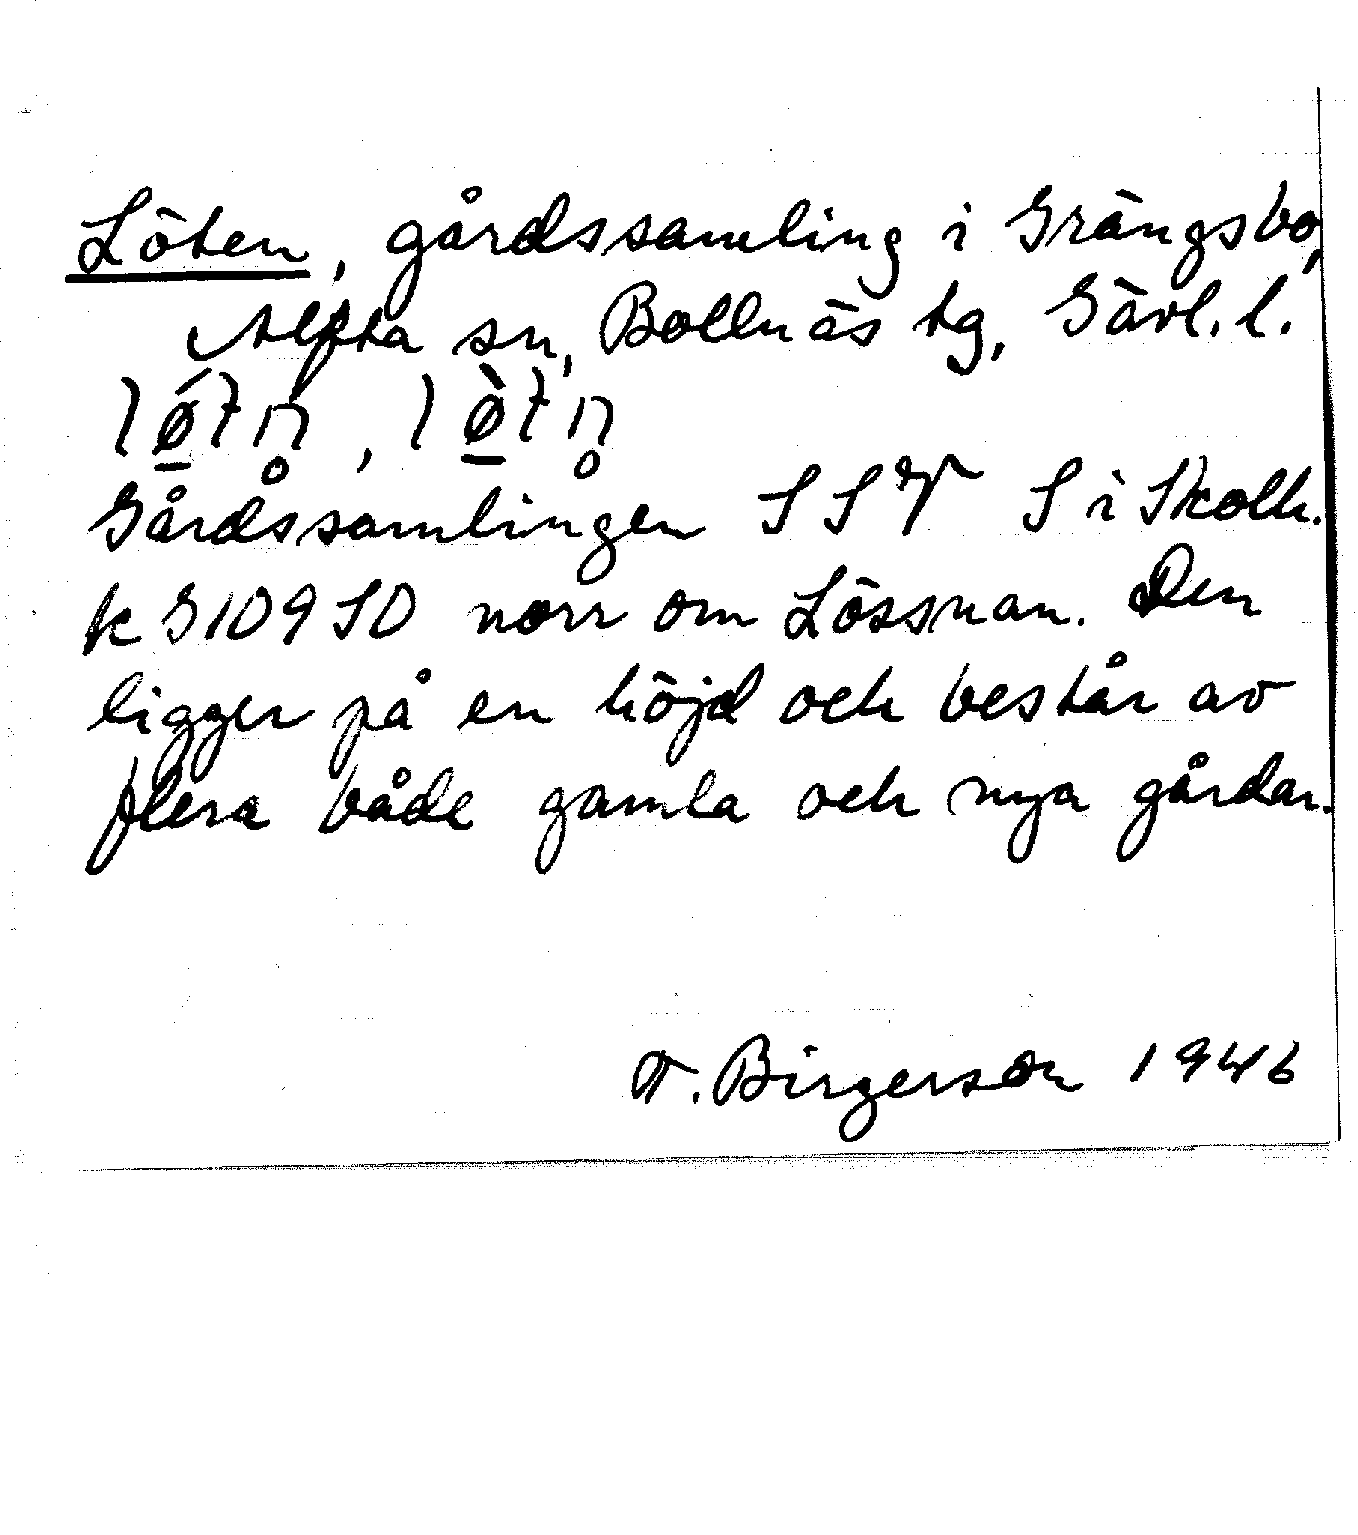 Löten, gårdssamling i Grängsbo,
Alfta sn, Bollnäs tg, Gävl. l.
Gårdssamlingen SSV S i Skolh.
k G109SO norr om Lössnan. Den
ligger på en höjd och består av
flera både gamla och nya gårdar.
T. Birgerson 1946